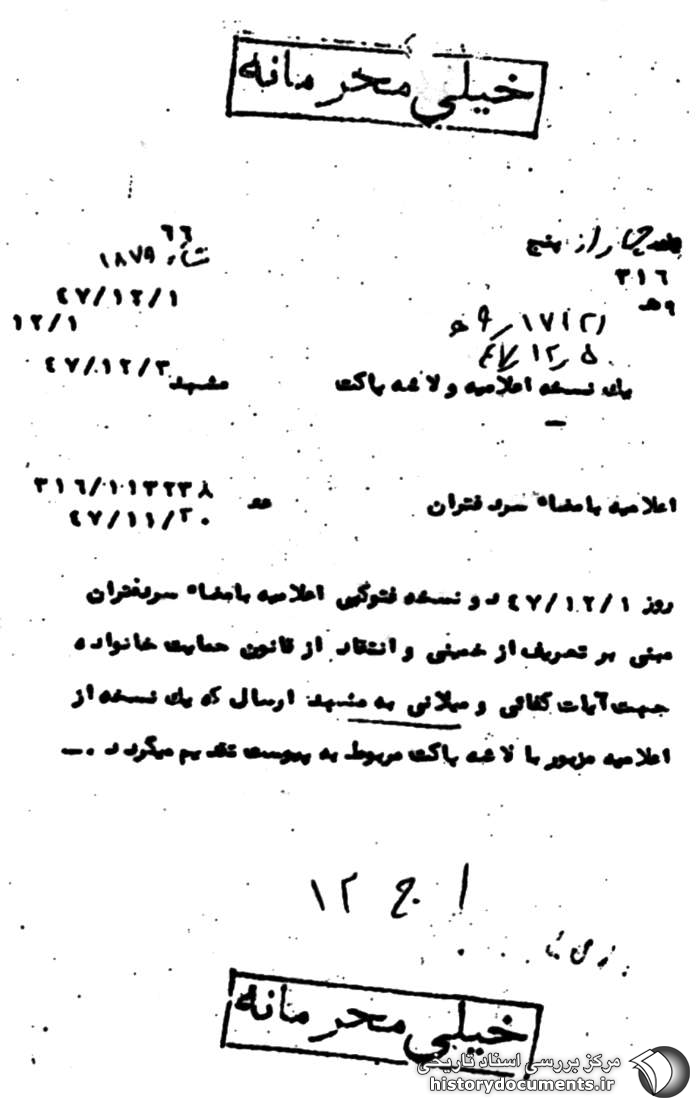 خیلی محرمانه
جلد چهار از پنج
۳۱۶
۹هـ
شماره ۱۸۷۹
۴۷/۱۲/۱
۱۲/۱
۴۷/۱۲/۳
۹هـ / ۱۷(۲۱
۴۷/۱۲/۵
یک نسخه اعلامیه و لاشه پاکت
مشهد
اعلامیه بامضاء سردفتران
۳۱۶/۱۰۱۳۲۳۸
۴۷/۱۱/۲۰
روز ۴۷/۱۲/۱ دو نسخه فتوکپی اعلامیه بامضاء سردفتران
مبنی بر تعریف از خمینی و انتقاد از قانون حمایت خانواده
جهت آیات کفائی و میلانی به مشهد ارسال که یک نسخه از
اعلامیه مزبور با لاشه پاکت مربوط به پیوست تقدیم میگردد .ـ
ا ج ۱۲
خیلی محرمانه
مرکز بررسی اسناد تاریخی
historydocuments.ir